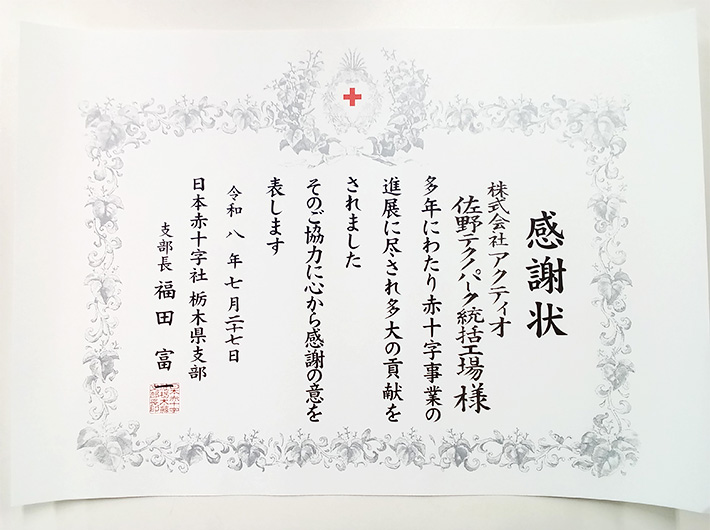 感謝状
株式会社アクティオ
佐野テクノパーク統括工場様
多年にわたり赤十字事業の
進展に尽され多大の貢献を
されました
そのご協力に心から感謝の意を
表します
令和八年七月二十七日
日本赤十字社 栃木県支部
支部長 福田富一